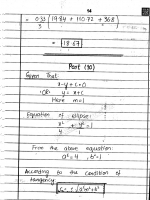 = 0.33 [19.84 + 110.72 + 36.8]
3
= 18.67
Part (30)
Given That:
x-y+c=0
OR: y = x+c
Here m=1
Equation of ellipse:
x²/4 + y²/1 = 1
From the above equation:
a²=4 , b²=1
According to the condition of
tangency